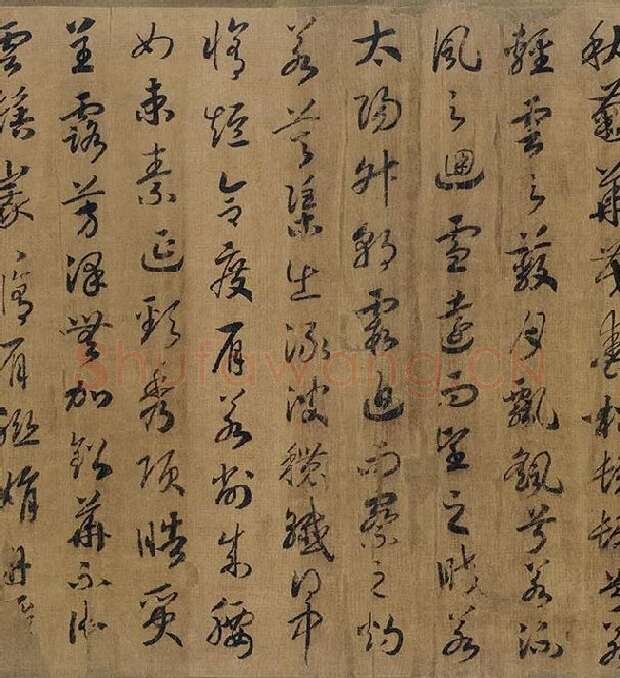 秋蘜華茂春松髣髴兮若
輕雲之蔽月飄颻兮若流
風之迴雪遠而望之皎若
太陽升朝霞迫而察之灼
若芙蕖出淥波穠纖得中
脩短合度肩若削成腰
如束素延頸秀項皓質
呈露芳澤無加鉛華不御
雲髻峩〻脩眉聯娟丹唇
Shufawang.CN